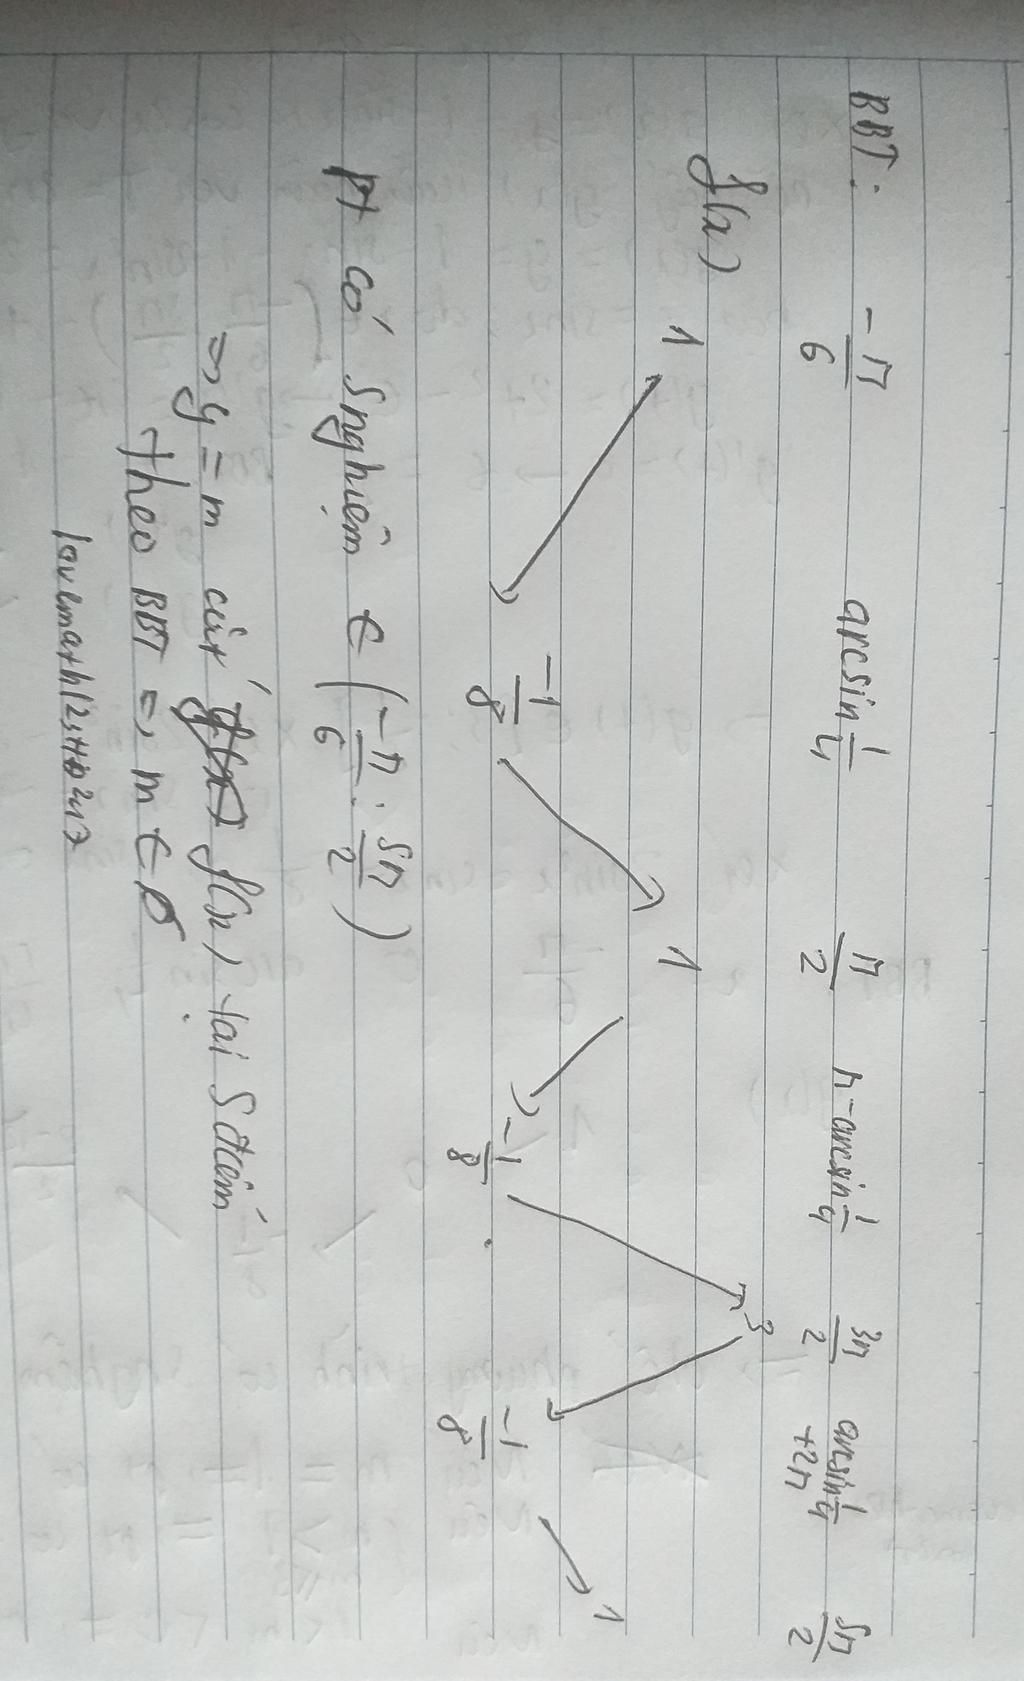 BBT: -π/6 arcsin 1/4 π/2 π-arcsin 1/4 3π/2 arcsin 1/4 +2π 5π/2
f(x) 1 -1/8 1 -1/8 3 -1/8 1
pt có 5 nghiệm ∈ (-π/6; 5π/2)
=> y = m cắt f(x) tại 5 điểm
theo BBT => m ∈ ∅